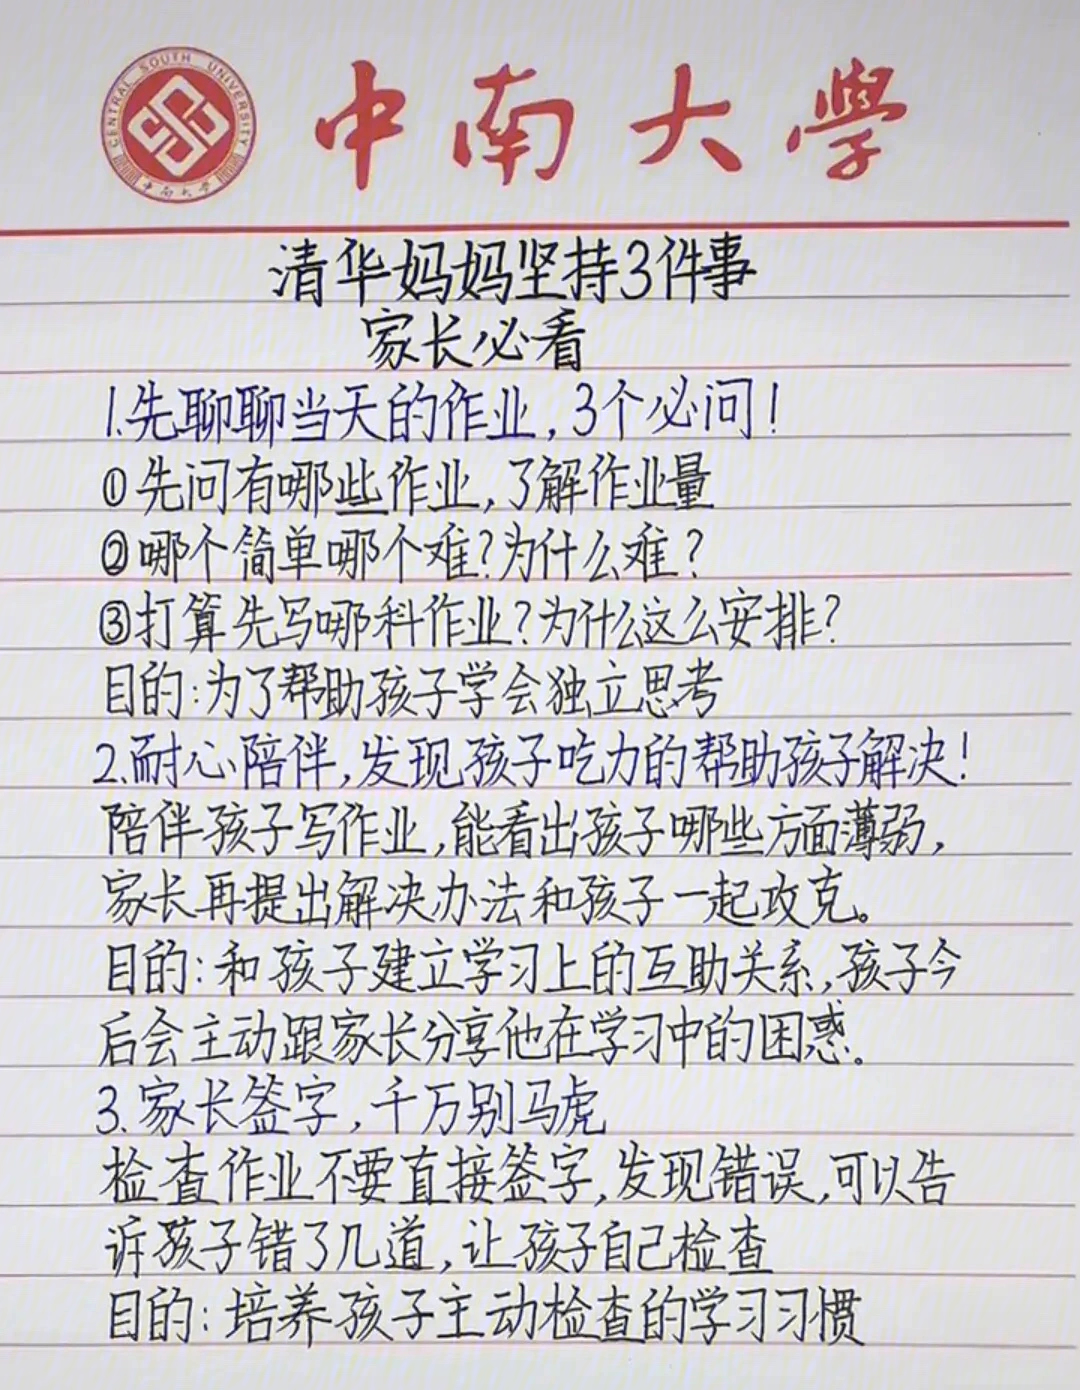 CENTRAL SOUTH UNIVERSITY
中南大学
中南大學
清华妈妈坚持3件事
家长必看
1.先聊聊当天的作业,3个必问!
①先问有哪些作业,了解作业量
②哪个简单哪个难?为什么难?
③打算先写哪科作业?为什么这么安排?
目的:为了帮助孩子学会独立思考
2.耐心陪伴,发现孩子吃力的帮助孩子解决!
陪伴孩子写作业,能看出孩子哪些方面薄弱,
家长再提出解决办法和孩子一起攻克。
目的:和孩子建立学习上的互助关系,孩子今
后会主动跟家长分享他在学习中的困惑。
3.家长签字,千万别马虎
检查作业不要直接签字,发现错误,可以告
诉孩子错了几道,让孩子自己检查
目的:培养孩子主动检查的学习习惯